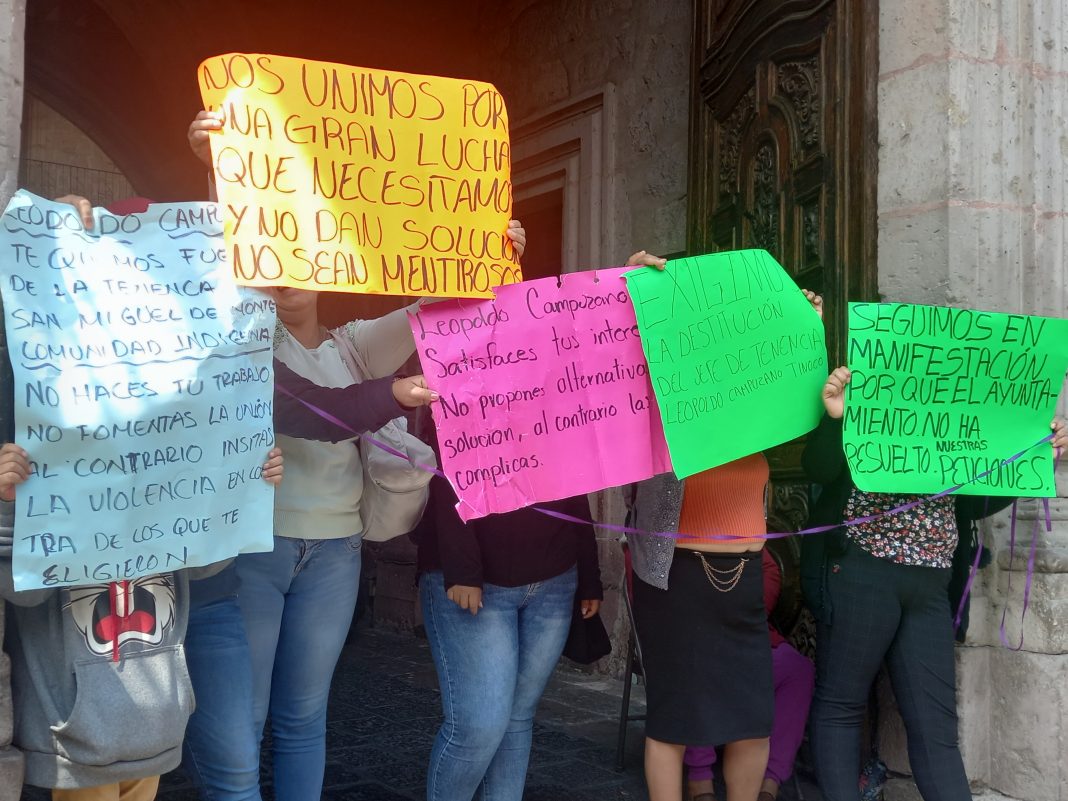 NOS UNIMOS POR
UNA GRAN LUCHA
QUE NECESITAMO
Y NO DAN SOLUCIÓ
NO SEAN MENTIROSOS
LEODOLDO CAMPU
TE QU MOS FUE
DE LA TENENCA
SAN MIGUEL DE MONTE
COMUNIDAD INDIGENA
NO HACES TU TRABAJO
NO FOMENTAS LA UNIÓN
AL CONTRARIO INSITAS
LA VIOLENCIA EN CO
TRA DE LOS QUE TE
ELIGIERON
Leopoldo Campuzano
Satisfaces tus intere
No propones alternativa
solucion, al contrario las
complicas.
EXIGIMO
LA DESTITUCIÓN
DEL JEFE DE TENENCIA
LEOPOLDO CAMPUZANO TINOCO
SEGUIMOS EN
MANIFESTACIÓN
POR QUE EL AYUNTA-
MIENTO. NO HA
RESUELTO. NUESTRAS PETICIONES.